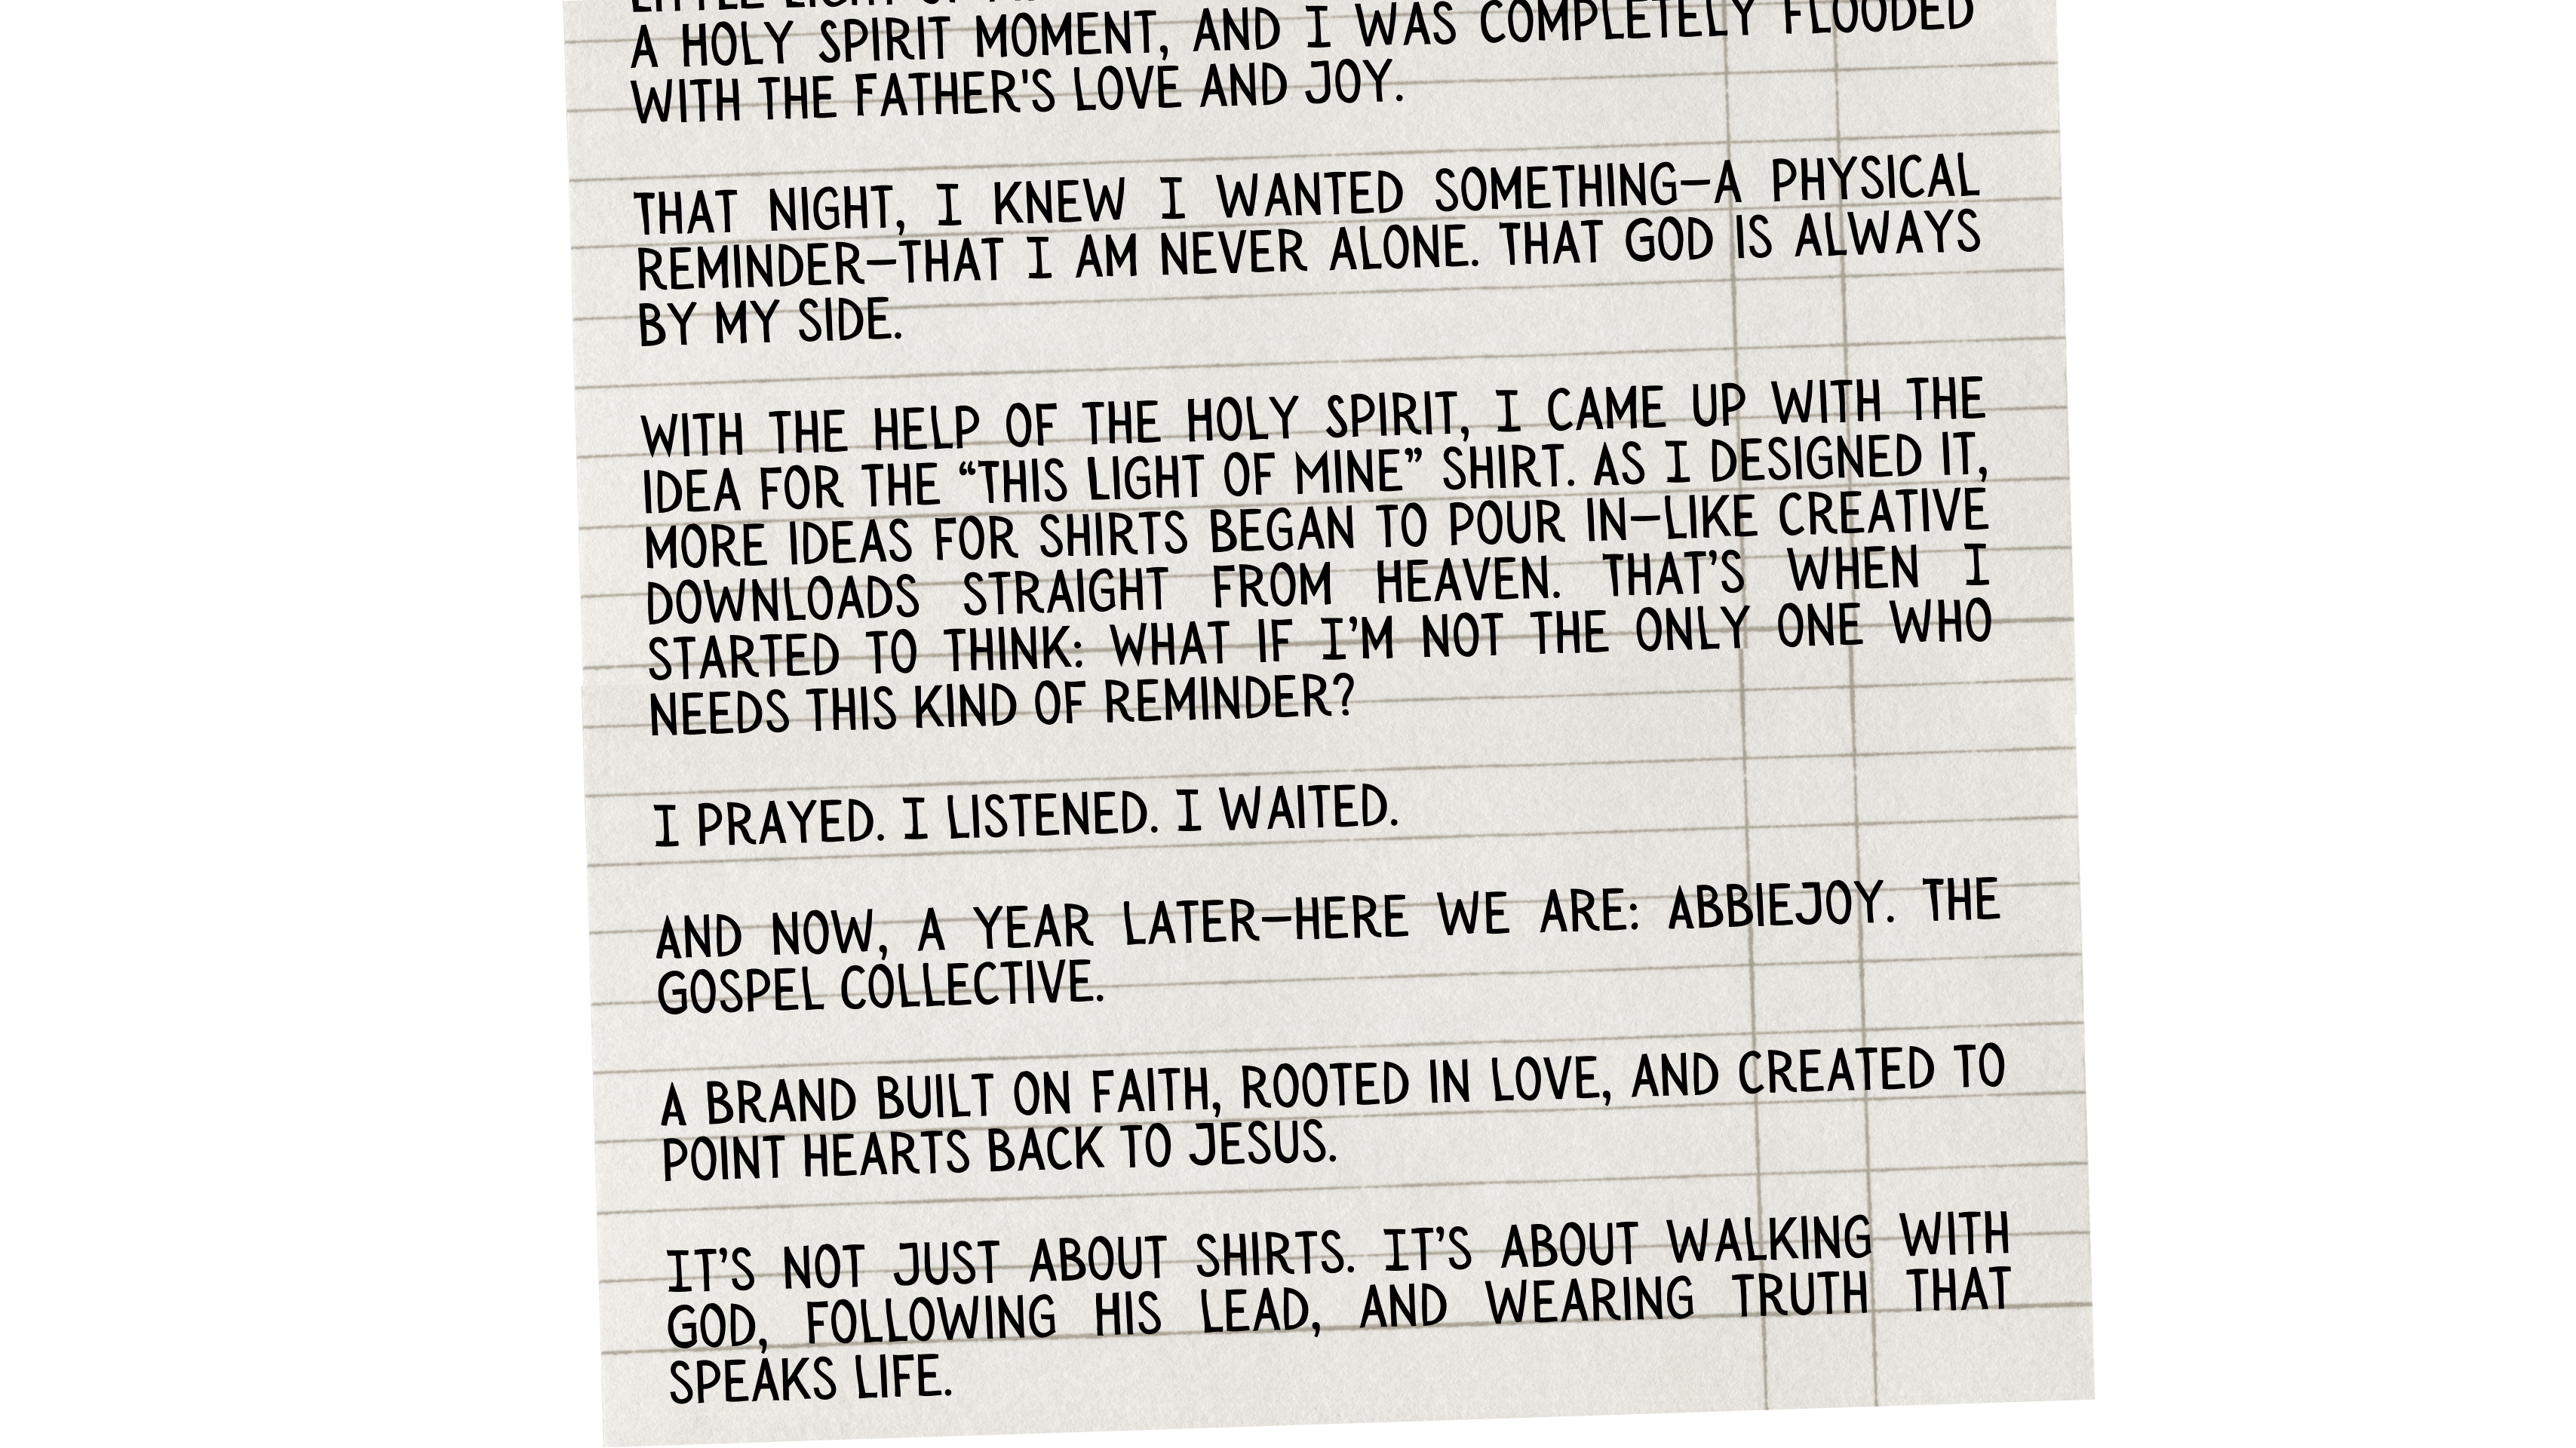 A HOLY SPIRIT MOMENT, AND I WAS COMPLETELY FLOODED
WITH THE FATHER'S LOVE AND JOY.
THAT NIGHT, I KNEW I WANTED SOMETHING—A PHYSICAL
REMINDER—THAT I AM NEVER ALONE. THAT GOD IS ALWAYS
BY MY SIDE.
WITH THE HELP OF THE HOLY SPIRIT, I CAME UP WITH THE
IDEA FOR THE “THIS LIGHT OF MINE” SHIRT. AS I DESIGNED IT,
MORE IDEAS FOR SHIRTS BEGAN TO POUR IN—LIKE CREATIVE
DOWNLOADS STRAIGHT FROM HEAVEN. THAT’S WHEN I
STARTED TO THINK: WHAT IF I’M NOT THE ONLY ONE WHO
NEEDS THIS KIND OF REMINDER?
I PRAYED. I LISTENED. I WAITED.
AND NOW, A YEAR LATER—HERE WE ARE: ABBIEJOY. THE
GOSPEL COLLECTIVE.
A BRAND BUILT ON FAITH, ROOTED IN LOVE, AND CREATED TO
POINT HEARTS BACK TO JESUS.
IT’S NOT JUST ABOUT SHIRTS. IT’S ABOUT WALKING WITH
GOD, FOLLOWING HIS LEAD, AND WEARING TRUTH THAT
SPEAKS LIFE.